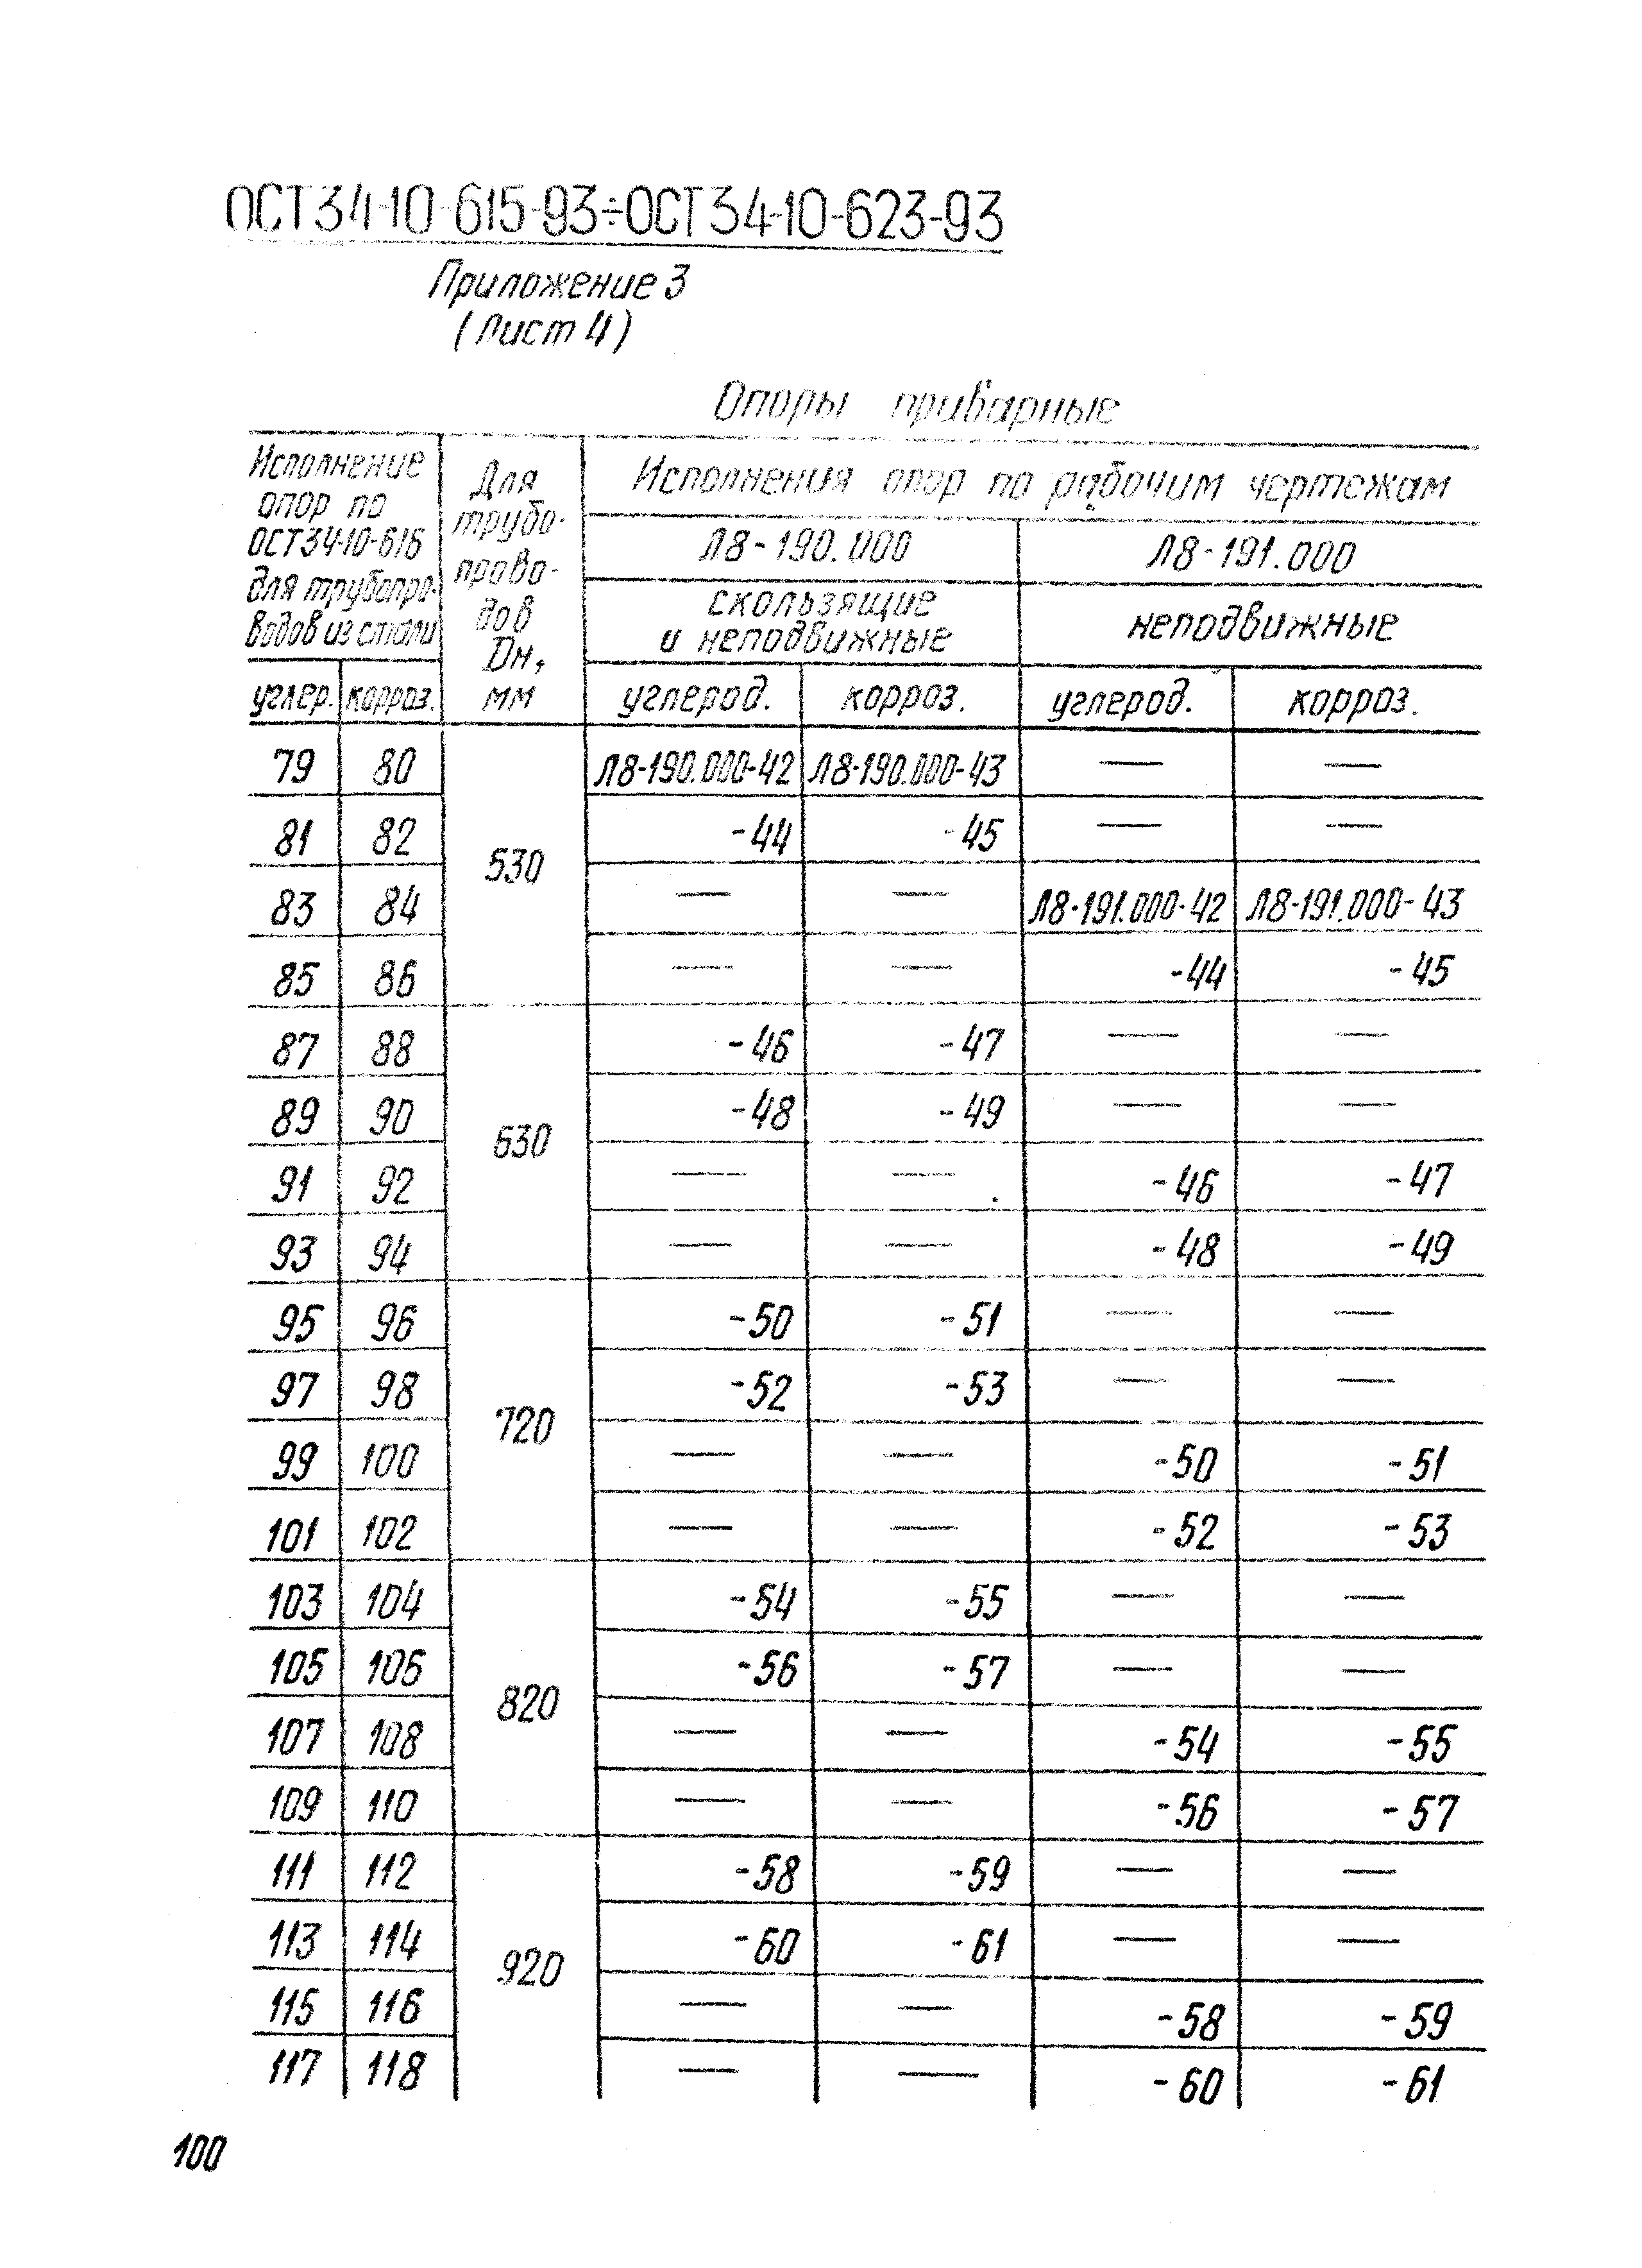 ОСТ 34-10-615-93÷ОСТ 34-10-623-93
Приложение 3
(Лист 4)
Опоры приварные
Исполнение опор по ОСТ34-10-616 для трубопроводов из стали
Для трубопроводов Dн, мм
Исполнения опор по рабочим чертежам
Л8-190.000 Л8-191.000
скользящие и неподвижные неподвижные
углер. корроз. углерод. корроз. углерод. корроз.
79 80 530 Л8-190.000-42 Л8-190.000-43 — —
81 82 -44 -45 — —
83 84 — — Л8-191.000-42 Л8-191.000-43
85 86 — — -44 -45
87 88 630 -46 -47 — —
89 90 -48 -49 — —
91 92 — — -46 -47
93 94 — — -48 -49
95 96 720 -50 -51 — —
97 98 -52 -53 — —
99 100 — — -50 -51
101 102 — — -52 -53
103 104 820 -54 -55 — —
105 106 -56 -57 — —
107 108 — — -54 -55
109 110 — — -56 -57
111 112 920 -58 -59 — —
113 114 -60 -61 — —
115 116 — — -58 -59
117 118 — — -60 -61
100